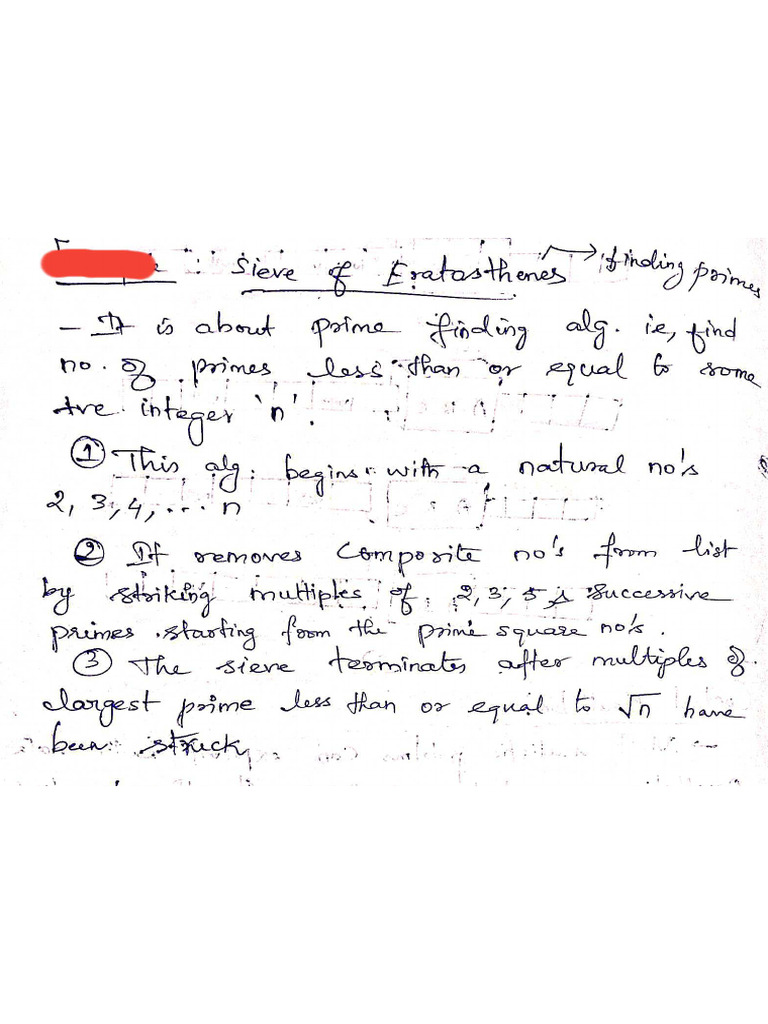 : Sieve of Eratosthenes → finding primes
- It is about prime finding alg. ie, find
no. of primes less than or equal to some
+ve integer 'n'.
① This alg. begins with a natural no's
2, 3, 4, ... n
② It removes composite no's from list
by striking multiples of 2, 3, 5 & successive
primes starting from the prime square no's.
③ The sieve terminates after multiples of
largest prime less than or equal to √n have
been struck